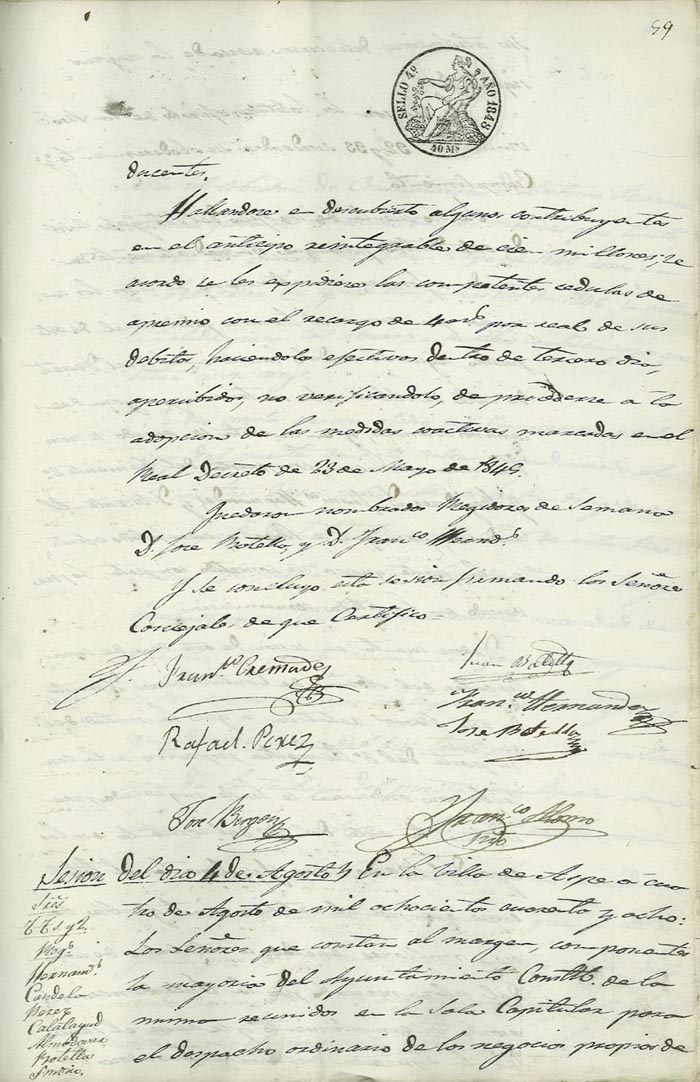 59
SELLO 4º AÑO 1848
40 Ms
ducentes.
Hallandose en descubierto algunos contribuyentes
en el anticipo reintegrable de cien millones, se
acordo se les expidiese las competentes cedulas de
apremio con el recargo de 4 mrs. por real de sus
debitos, haciendolos efectivos dentro de tercero dia,
apercibidos, no verificandolo, de procederse a la
adopcion de las medidas coactivas marcadas en el
Real Decreto de 23 de Mayo de 1845.
Quedaron nombrados Regidores de Semana
D. Jose Botella, y D. Franco Hernds
Y se concluyo esta sesion firmando los Señores
Concejales de que Certifico=
Franco Cremades
Juan Botella
Franco Hernandez
Rafael Perez
Jose Botella
Jose
Franco
Srio
Sesion del dia 4 de Agosto En la Villa de Aspe a cua
tro de Agosto de mil ochocientos cuarenta y ocho:
Los Señores que constan al margen, componentes
la mayoria del Ayuntamiento Constl. de la
misma reunidos en la Sala Capitular para
el despacho ordinario de los negocios propios de
Sres
TTs y 2.
Regs
Hernands
Candela
Perez
Calatayud
Almodovar
Botella